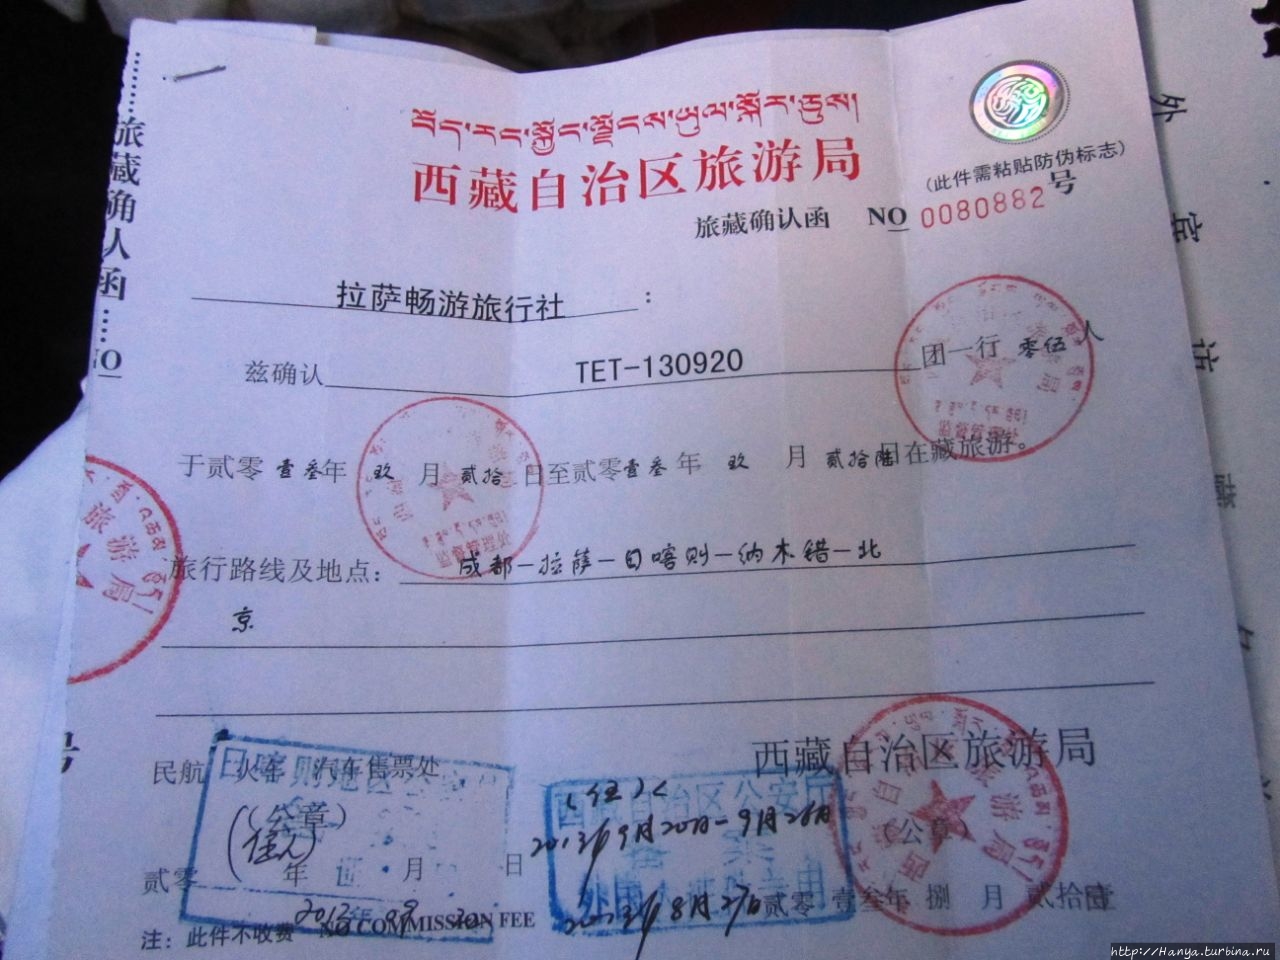 བོད་རང་སྐྱོང་ལྗོངས་ཡུལ་སྐོར་ཅུས།
西藏自治区旅游局
(此件需粘贴防伪标志)
旅藏确认函 NO 0080882号
旅藏确认函……NO
拉萨畅游旅行社：
兹确认 TET-130920 团一行 零伍 人
于贰零壹叁年 玖 月 贰拾 日至贰零壹叁年 玖 月 贰拾陆日在藏旅游。
旅行路线及地点：成都－拉萨－日喀则－纳木错－北
京
民航 火车 汽车售票处
西藏自治区旅游局
(公章)
(公章)
2013年9月20日－9月26日
西藏自治区公安厅
2013年8月27日
贰零 年 月 日
贰零壹叁年 捌 月 贰拾壹
注：此件不收费 NO COMMISSION FEE
旅游局
号
http://Hanya.turbina.ru